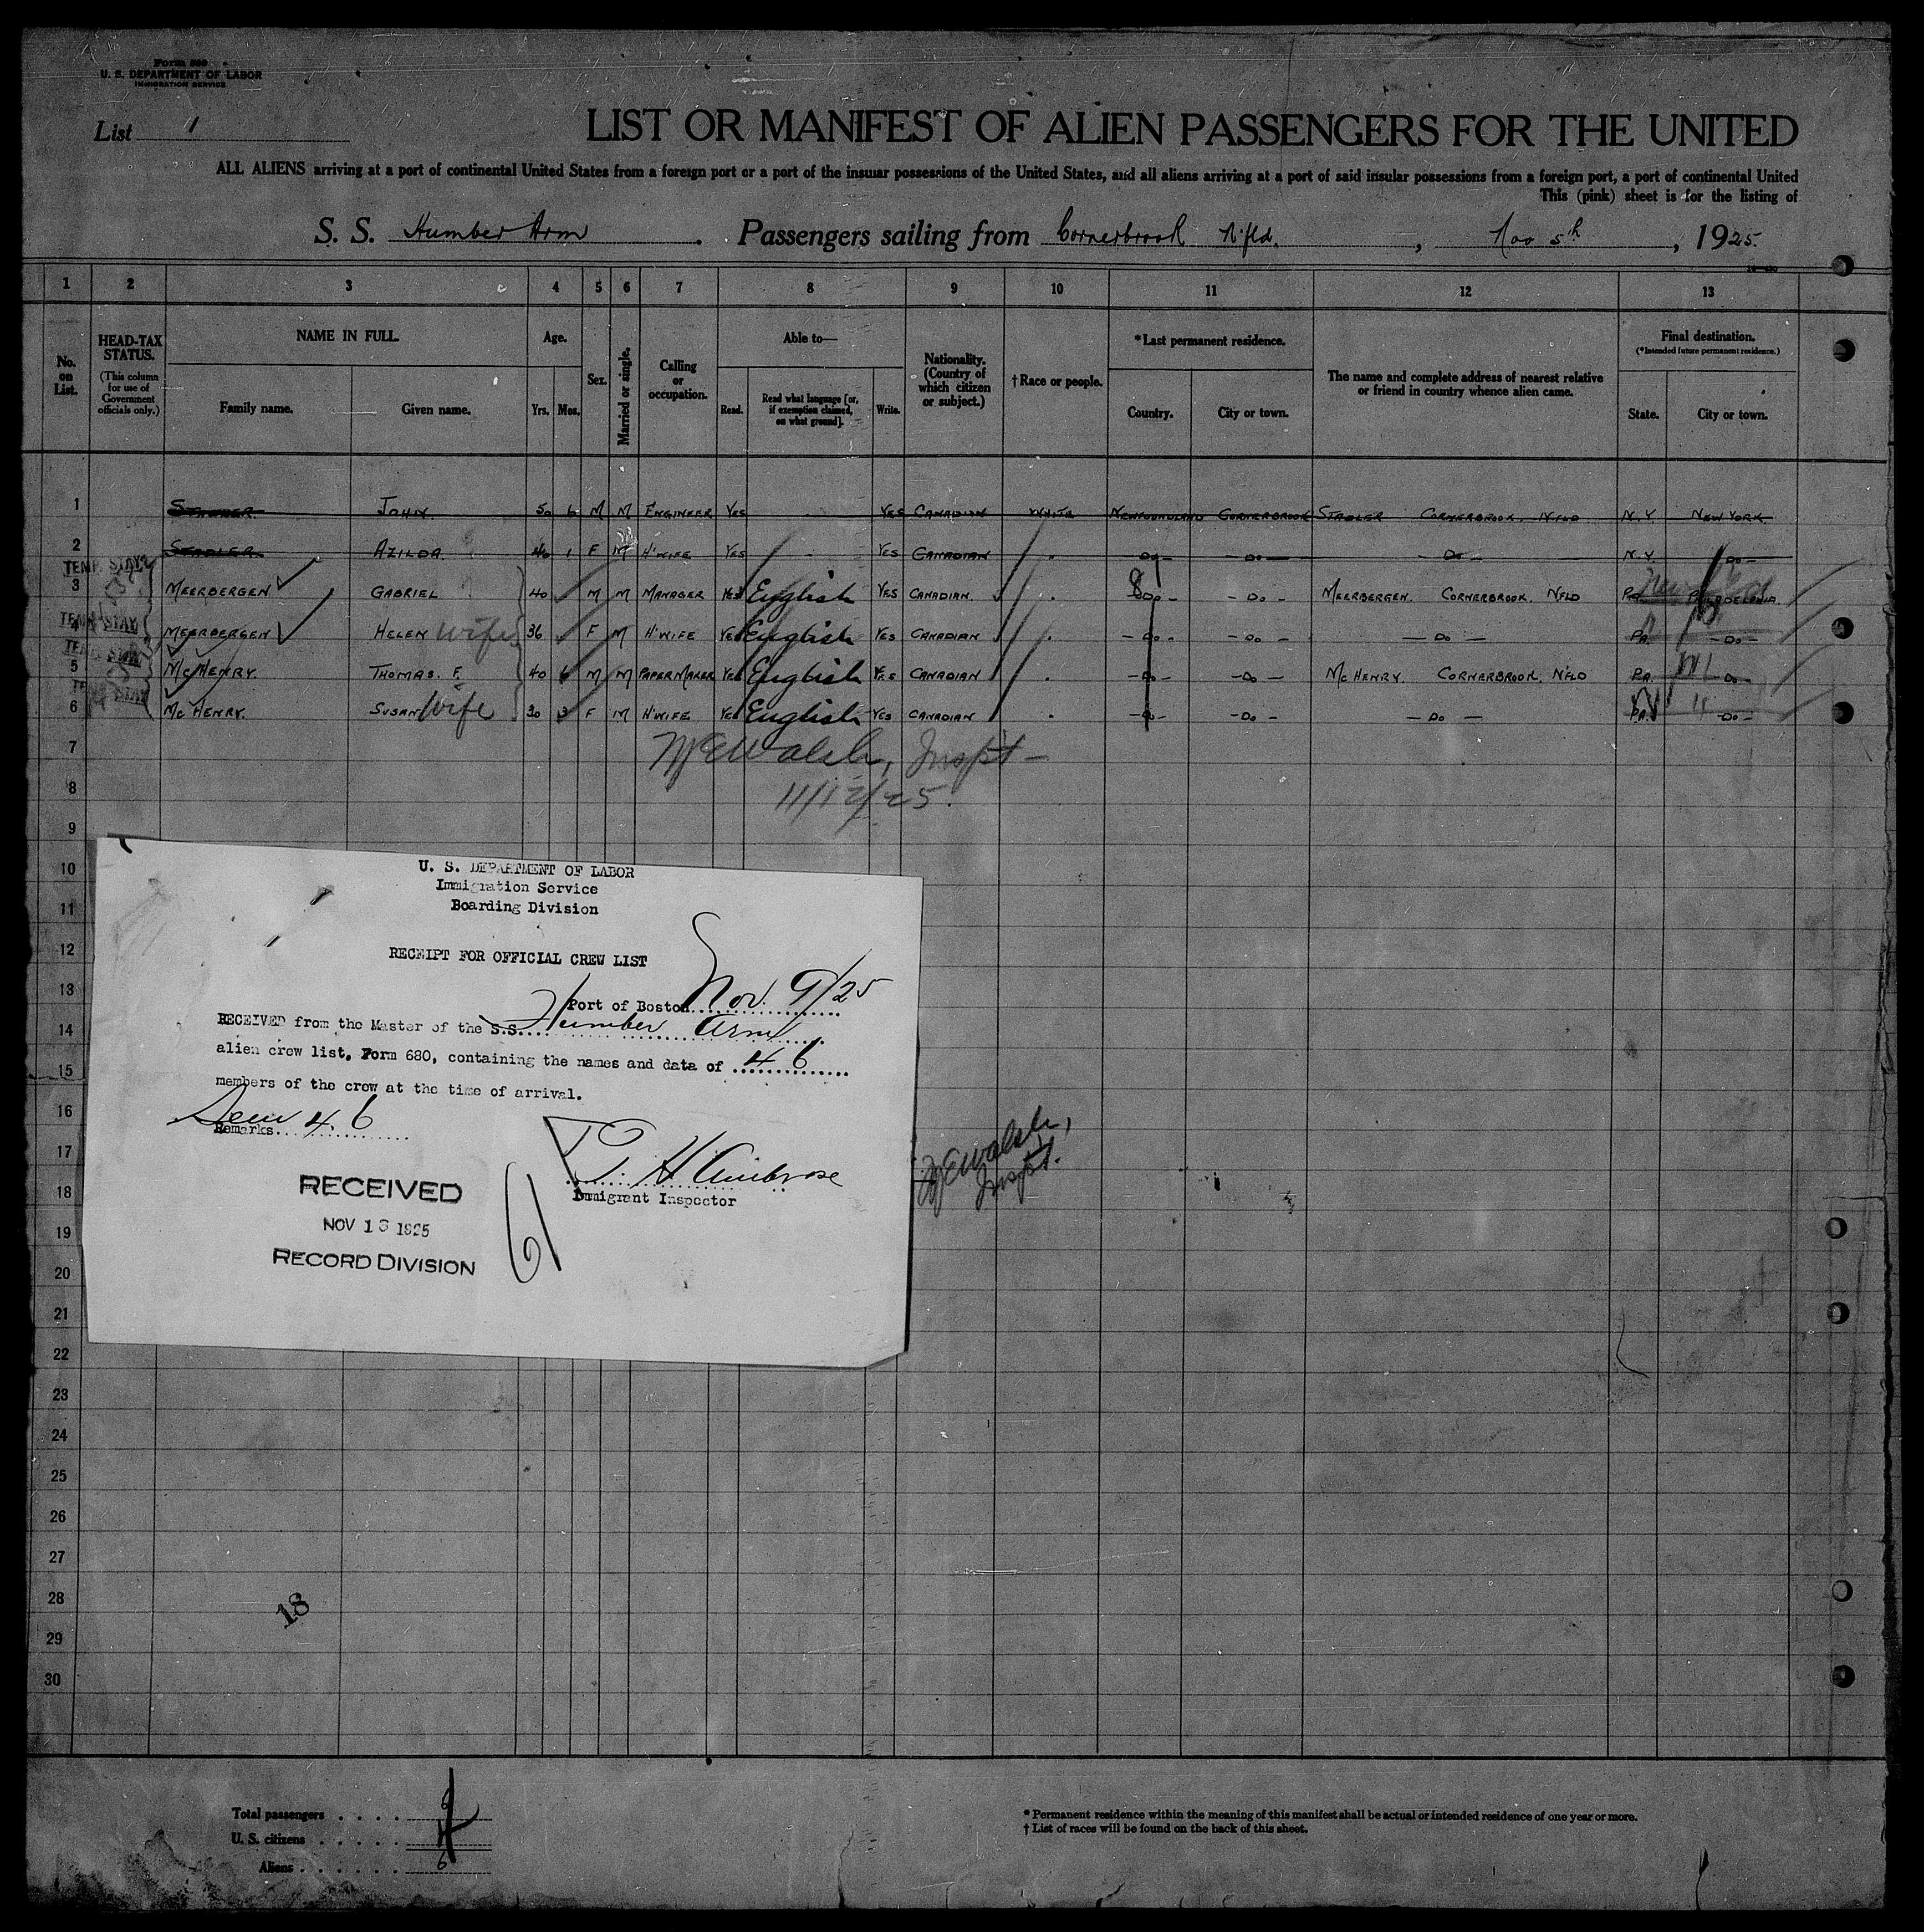 Form 500
U. S. DEPARTMENT OF LABOR
IMMIGRATION SERVICE
List 1
LIST OR MANIFEST OF ALIEN PASSENGERS FOR THE UNITED
ALL ALIENS arriving at a port of continental United States from a foreign port or a port of the insular possessions of the United States, and all aliens arriving at a port of said insular possessions from a foreign port, a port of continental United
This (pink) sheet is for the listing of
S. S. Humber Arm. Passengers sailing from Cornerbrook Nfld., Nov 5th, 1925.
1 2 3 4 5 6 7 8 9 10 11 12 13
No. on List.
HEAD-TAX STATUS.
(This column for use of Government officials only.)
NAME IN FULL.
Family name. Given name.
Age.
Yrs. Mos.
Sex.
Married or single.
Calling or occupation.
Able to—
Read. Read what language [or, if exemption claimed, on what ground]. Write.
Nationality. (Country of which citizen or subject.)
† Race or people.
* Last permanent residence.
Country. City or town.
The name and complete address of nearest relative or friend in country whence alien came.
Final destination.
(* Intended future permanent residence.)
State. City or town.
1 STADLER JOHN. 50 6 M M ENGINEER YES - YES CANADIAN WHITE NEWFOUNDLAND CORNERBROOK STADLER CORNERBROOK. NFLD N.Y. NEW YORK.
2 STADLER. AZILDA. 40 1 F M H'WIFE YES - YES CANADIAN - DO - - DO - - DO - N.Y. - DO -
TEMP. STAY
3 MEERBERGEN GABRIEL 40 M M MANAGER YES English YES CANADIAN. - DO - - DO - MEERBERGEN. CORNERBROOK. NFLD PA. PHILADELPHIA.
TEMP. STAY
4 MEERBERGEN HELEN wife 36 F M H'WIFE YES English YES CANADIAN - DO - - DO - - DO - PA. - DO -
TEMP. STAY
5 MCHENRY. THOMAS. F. 40 6 M M PAPERMAKER YES English YES CANADIAN - DO - - DO - MCHENRY. CORNERBROOK. N'FLD PA. - DO -
TEMP. STAY
6 MCHENRY. SUSAN wife 30 3 F M H'WIFE YES English YES CANADIAN - DO - - DO - - DO - PA. - DO -
7
McEWalsh, Inspt -
8
11/12/25.
9
10
11
12
13
14
15
16
17
18
19
20
21
22
23
24
25
26
27
28
29
30
U. S. DEPARTMENT OF LABOR
Immigration Service
Boarding Division
RECEIPT FOR OFFICIAL CREW LIST
Port of Boston Nov. 9/25
RECEIVED from the Master of the S.S. Humber Arm
alien crew list, Form 680, containing the names and data of 46
members of the crew at the time of arrival.
Remarks 46
T. H. Ambrose
Immigrant Inspector
RECEIVED
NOV 13 1925
RECORD DIVISION
61
McEWalsh,
Inspt.
18
Total passengers
U. S. citizens
Aliens 6
* Permanent residence within the meaning of this manifest shall be actual or intended residence of one year or more.
† List of races will be found on the back of this sheet.